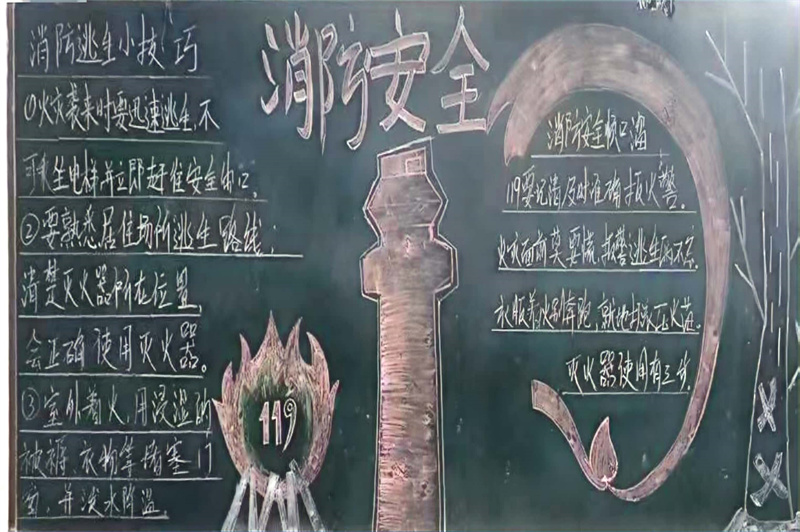 消防安全
消防逃生小技巧
①火灾袭来时要迅速逃生,不
可乘坐电梯并立即赶往安全出口。
②要熟悉居住场所逃生路线;
清楚灭火器所在位置
会正确使用灭火器。
③室外着火,用浸湿的
被褥、衣物等堵塞门
窗,并泼水降温。
119
消防安全顺口溜
119要记清及时准确报火警。
火灾面前莫要慌,报警逃生两不忘
衣服着火别奔跑,就地打滚压火苗。
灭火器使用有三步